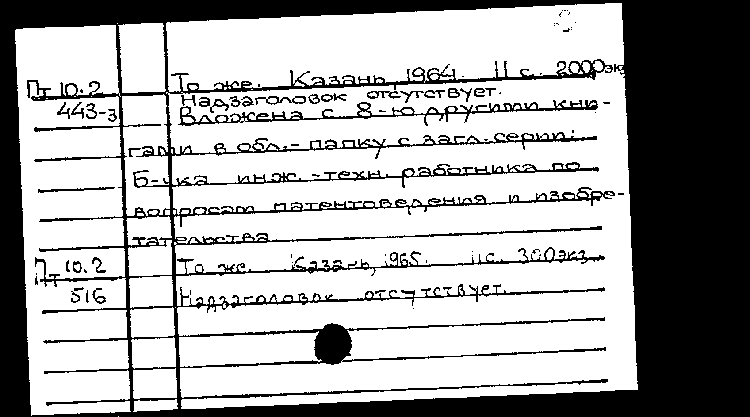 Пт 10.2 То же. Казань, 1964. 11 с. 2000 экз
443-з Надзаголовок отсутствует.
Вложена с 8-ю другими кни-
гами в обл.- папку с загл. серии:
Б-чка инж.-техн. работника по
вопросам патентоведения и изобре-
тательства
Пт 10.2 То же. Казань, 1965. 11 с. 300 экз.
516 Надзаголовок отсутствует.